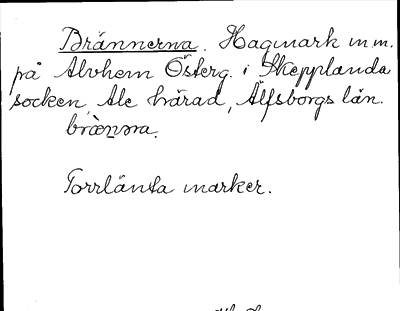 Brännerna. Hagmark m.m.
på Alvhem Österg. i Skepplanda
socken, Ale härad, Älfsborgs län.
bränna.
Torrlänta marker.